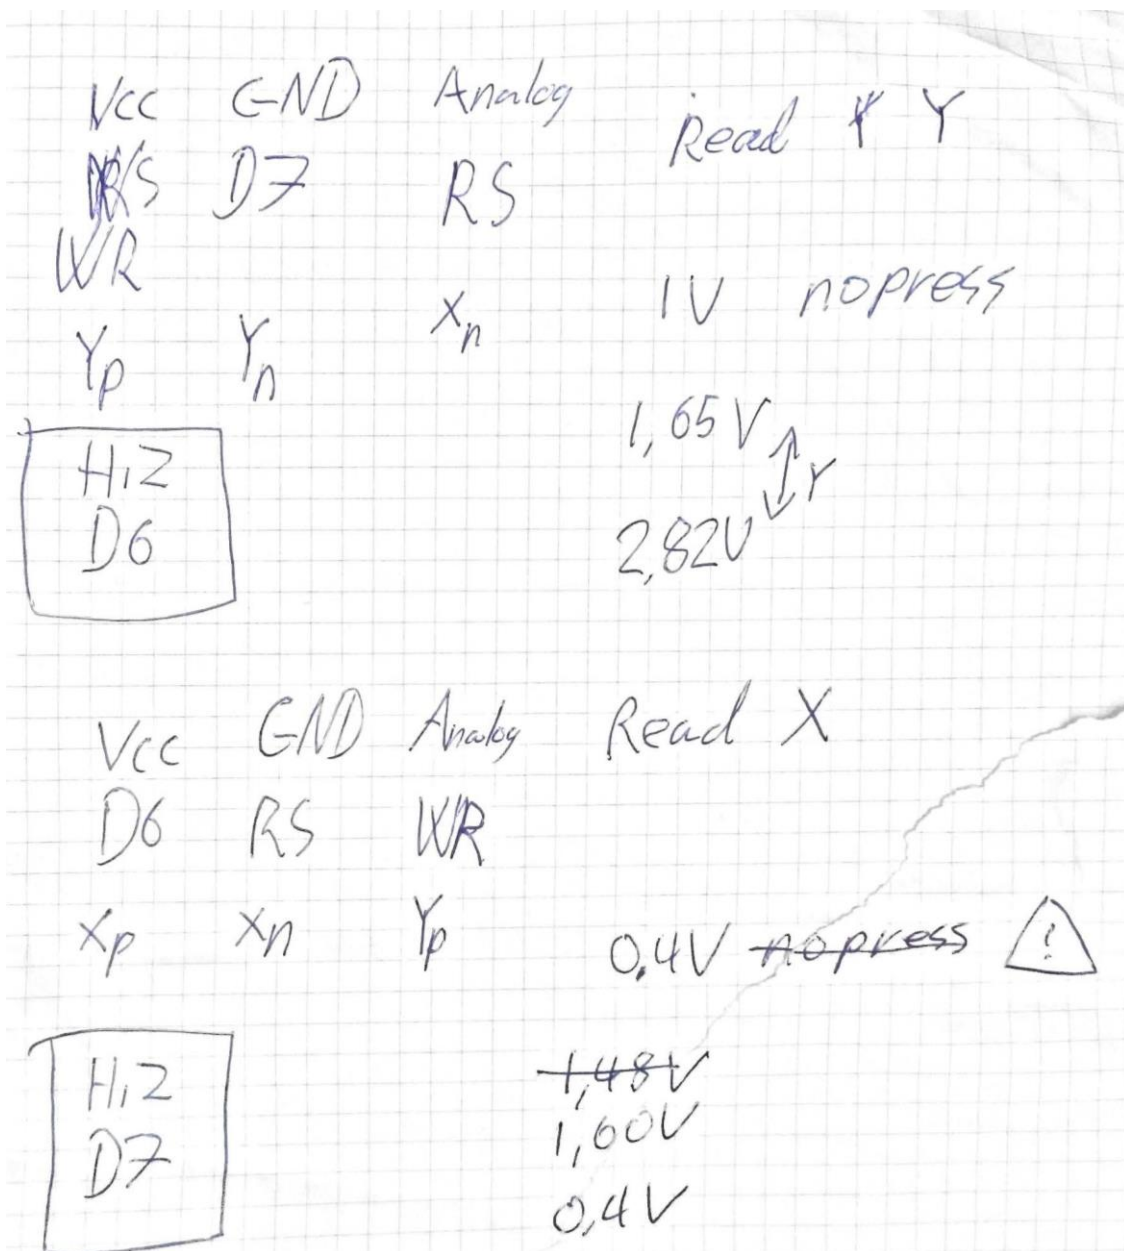 Vcc GND Analog
Read Y
D7 RS
WR
1V nopress
Yp Yn Xn
1,65V
Y
2,82V
HiZ
D6
Vcc GND Analog Read X
D6 RS WR
Xp Xn Yp
0,4V nopress !
HiZ
D7
1,48V
1,60V
0,4V